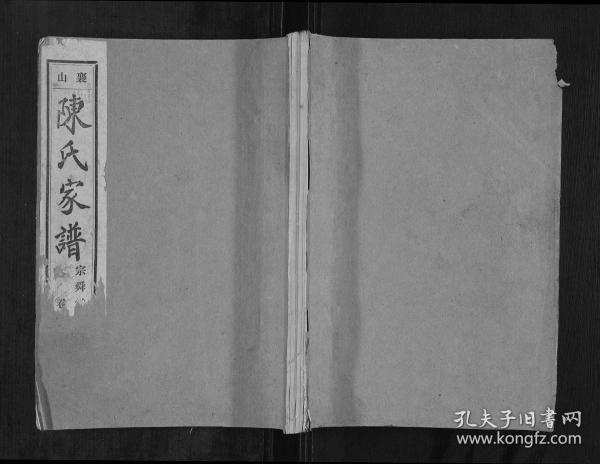 襄山
陳氏家譜
宗舜
卷
孔夫子旧书网
www.kongfz.com